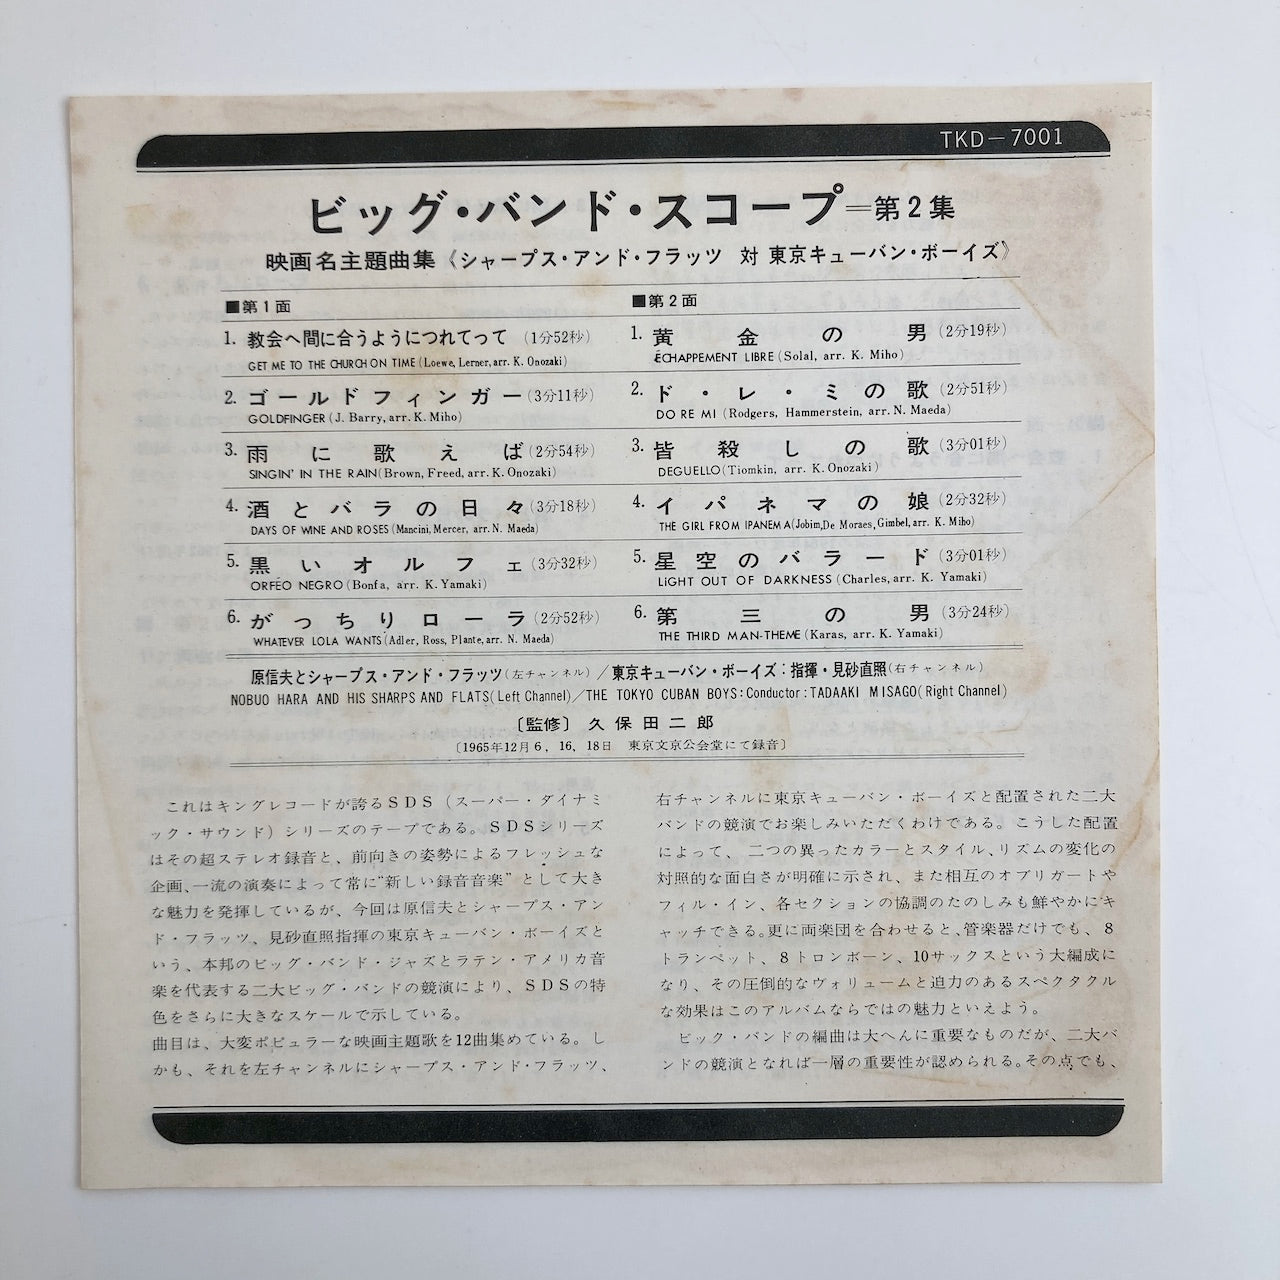 TKD－7001
ビッグ・バンド・スコープ＝第2集
映画名主題曲集《シャープス・アンド・フラッツ 対 東京キューバン・ボーイズ》
■第1面
1. 教会へ間に合うようにつれてって (1分52秒)
GET ME TO THE CHURCH ON TIME (Loewe, Lerner, arr. K. Onozaki)
2. ゴールドフィンガー (3分11秒)
GOLDFINGER (J. Barry, arr. K. Miho)
3. 雨に歌えば (2分54秒)
SINGIN' IN THE RAIN (Brown, Freed, arr. K. Onozaki)
4. 酒とバラの日々 (3分18秒)
DAYS OF WINE AND ROSES (Mancini, Mercer, arr. N. Maeda)
5. 黒いオルフェ (3分32秒)
ORFEO NEGRO (Bonfa, arr. K. Yamaki)
6. がっちりローラ (2分52秒)
WHATEVER LOLA WANTS (Adler, Ross, Plante, arr. N. Maeda)
■第2面
1. 黄金の男 (2分19秒)
ÉCHAPPEMENT LIBRE (Solal, arr. K. Miho)
2. ド・レ・ミの歌 (2分51秒)
DO RE MI (Rodgers, Hammerstein, arr. N. Maeda)
3. 皆殺しの歌 (3分01秒)
DEGUELLO (Tiomkin, arr. K. Onozaki)
4. イパネマの娘 (2分32秒)
THE GIRL FROM IPANEMA (Jobim, De Moraes, Gimbel, arr. K. Miho)
5. 星空のバラード (3分01秒)
LIGHT OUT OF DARKNESS (Charles, arr. K. Yamaki)
6. 第三の男 (3分24秒)
THE THIRD MAN-THEME (Karas, arr. K. Yamaki)
原信夫とシャープス・アンド・フラッツ(左チャンネル)／東京キューバン・ボーイズ：指揮・見砂直照(右チャンネル)
NOBUO HARA AND HIS SHARPS AND FLATS (Left Channel)／THE TOKYO CUBAN BOYS: Conductor: TADAAKI MISAGO (Right Channel)
〔監修〕久保田二郎
〔1965年12月6，16，18日 東京文京公会堂にて録音〕
これはキングレコードが誇るSDS（スーパー・ダイナミ
ック・サウンド）シリーズのテープである。SDSシリーズ
はその超ステレオ録音と、前向きの姿勢によるフレッシュな
企画、一流の演奏によって常に"新しい録音音楽"として大き
な魅力を発揮しているが、今回は原信夫とシャープス・アン
ド・フラッツ、見砂直照指揮の東京キューバン・ボーイズと
いう、本邦のビッグ・バンド・ジャズとラテン・アメリカ音
楽を代表する二大ビッグ・バンドの競演により、SDSの特
色をさらに大きなスケールで示している。
曲目は、大変ポピュラーな映画主題歌を12曲集めている。し
かも、それを左チャンネルにシャープス・アンド・フラッツ、
右チャンネルに東京キューバン・ボーイズと配置された二大
バンドの競演でお楽しみいただくわけである。こうした配置
によって、二つの異ったカラーとスタイル、リズムの変化の
対照的な面白さが明確に示され、また相互のオブリガートや
フィル・イン、各セクションの協調のたのしみも鮮やかにキ
ャッチできる。更に両楽団を合わせると、管楽器だけでも、8
トランペット、8トロンボーン、10サックスという大編成に
なり、その圧倒的なヴォリュームと迫力のあるスペクタクル
な効果はこのアルバムならではの魅力といえよう。
ビック・バンドの編曲は大へんに重要なものだが、二大バ
ンドの競演となれば一層の重要性が認められる。その点でも、